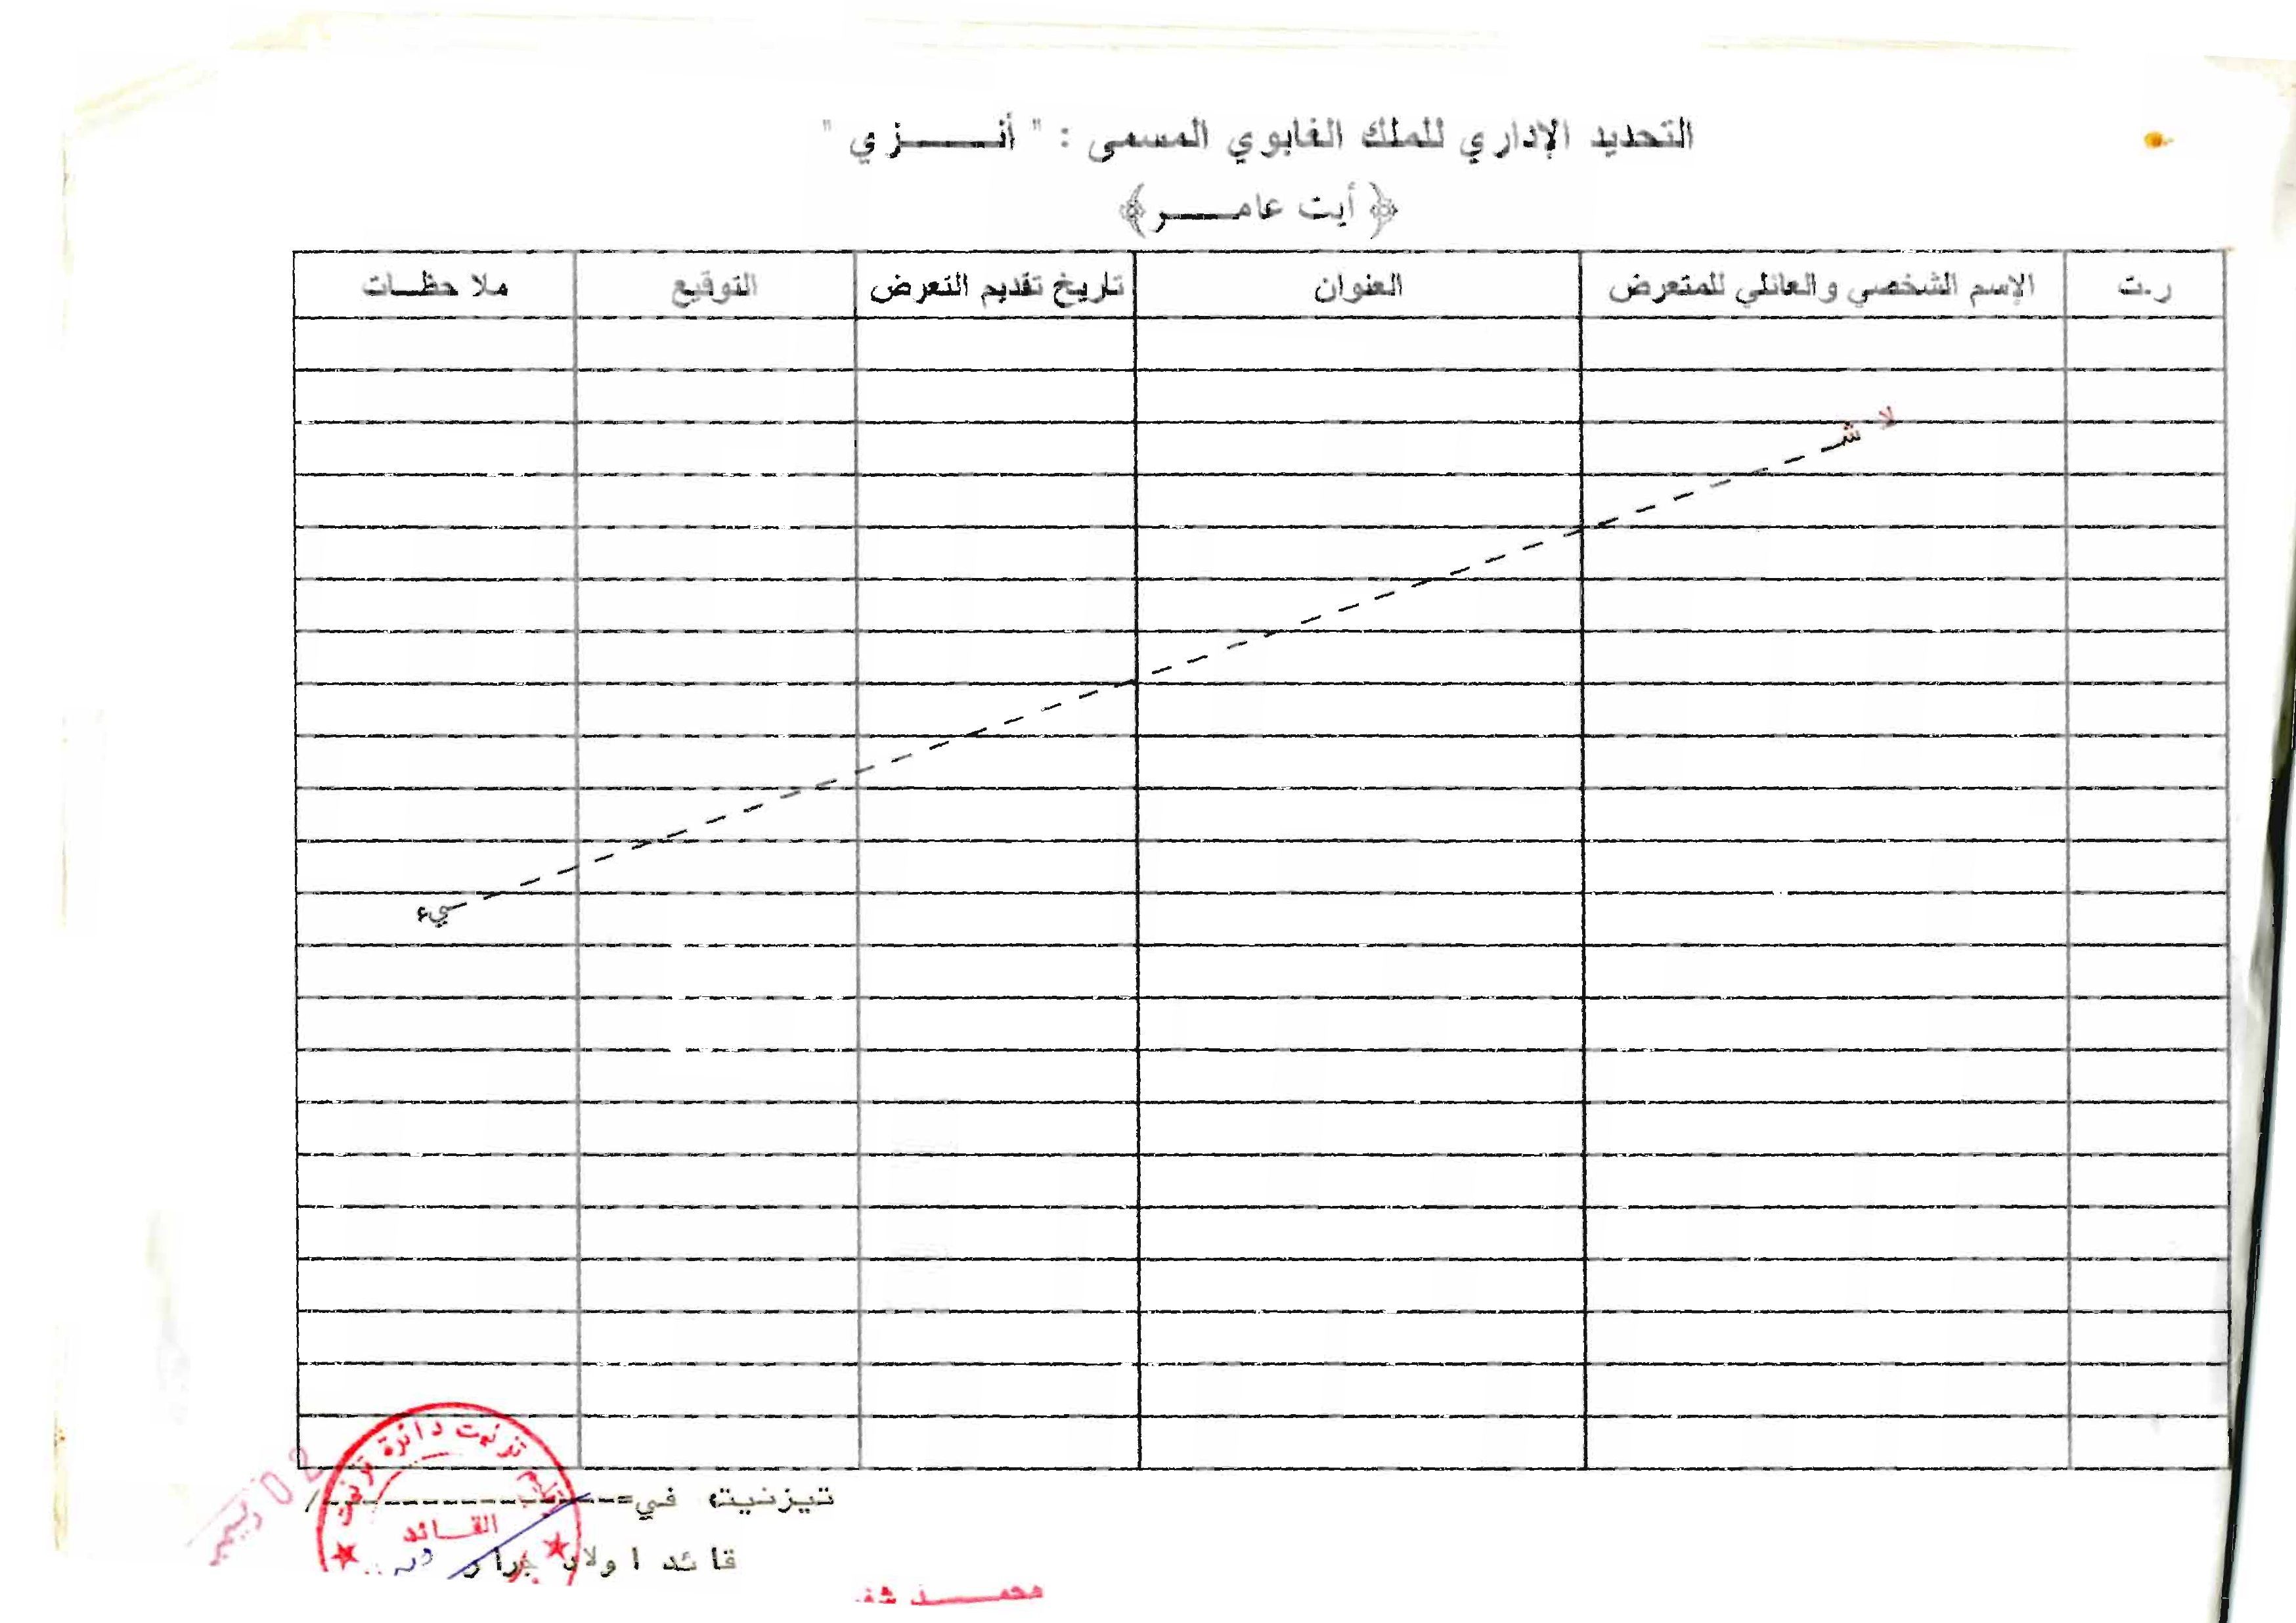 التحديد الإداري للملك الغابوي المسمى : " أنـــــزي "
﴿ أيت عامـــــر﴾
ر.ت الإسم الشخصي والعائلي للمتعرض العنوان تاريخ تقديم التعرض التوقيع ملاحظـــات
لا شـ
ـيء
تيزنيت، في=----------------/
قائد اولاد جرار
دائرة تزنيت
القـــائد
02 دجنبر
محمـــــد